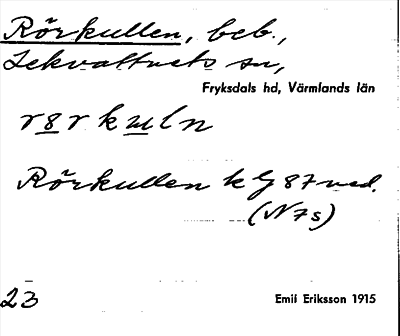 Rörkullen, beb.,
Lekvattnets sn,
Fryksdals hd, Värmlands län
r8rkuln
Rörkullen k G 87 ned.
(N 7s)
23
Emil Eriksson 1915